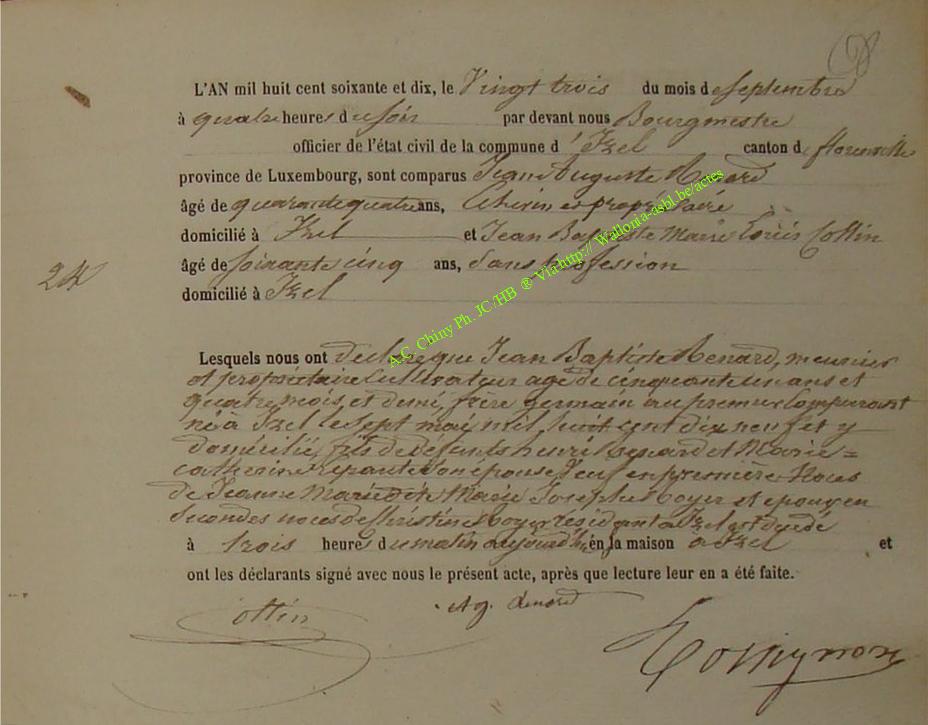 L'AN mil huit cent soixante et dix, le Vingt trois du mois de septembre
à quatre heures du soir par devant nous Bourgmestre
officier de l'état civil de la commune d'Izel canton de florenville
province de Luxembourg, sont comparus Jean Auguste Renard
âgé de quarante quatre ans, Echevin et propriétaire
domicilié à Izel et Jean Baptiste Marie Louis Collin
âgé de soixante cinq ans, Sans profession
24
domicilié à Izel
A.C. Chiny Ph. JC /HB ® Via http:// Wallonia-asbl.be/actes
Lesquels nous ont déclaré que Jean Baptiste Renard, meunier
et propriétaire cultivateur agé de cinquante un ans et
quatre mois et demi, frère germain au premier Comparant
né à Izel le sept mai mil huit cent dix neuf et y
domicilié, fils de défunts henri Renard et Marie=
catherine son épouse Veuf en première Noces
de Jeanne Marie dite Marie Joseph et epoux en
Secondes noces de Christine résidant à Izel est décédé
à trois heures du matin aujourd'hui en sa maison à Izel et
ont les déclarants signé avec nous le présent acte, après que lecture leur en a été faite.
Collin Ag. Renard